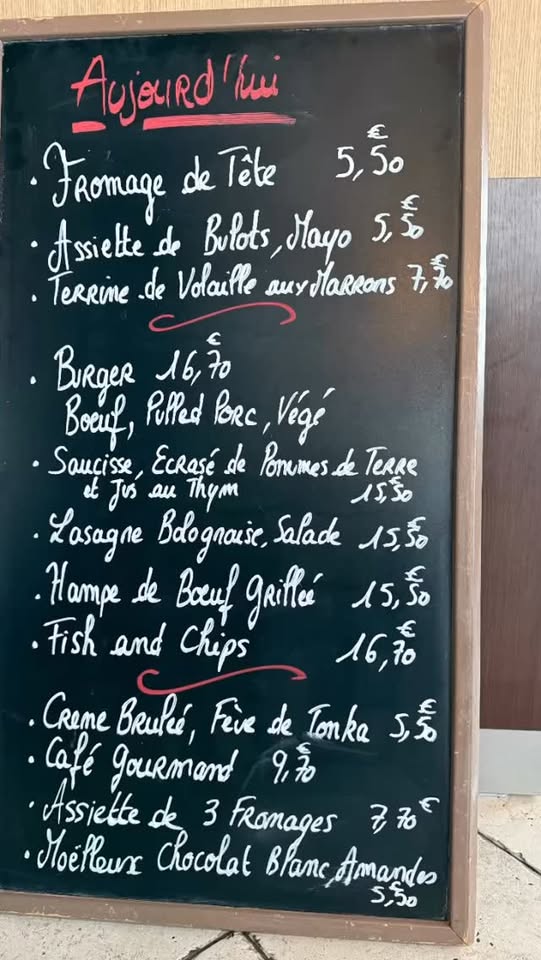 Aujourd'hui
• Fromage de Tête 5,50€
• Assiette de Bulots, Mayo 5,50€
• Terrine de Volaille aux Marrons 7,70€
• Burger 16,70€
Boeuf, Pulled Porc, Végé
• Saucisse, Ecrasé de Pommes de Terre
et Jus au Thym 15,50€
• Lasagne Bolognaise, Salade 15,50€
• Hampe de Boeuf Grillée 15,50€
• Fish and Chips 16,70€
• Creme Brulée, Fève de Tonka 5,50€
• Café Gourmand 9,70€
• Assiette de 3 Fromages 7,70€
• Moëlleux Chocolat Blanc, Amandes
5,50€